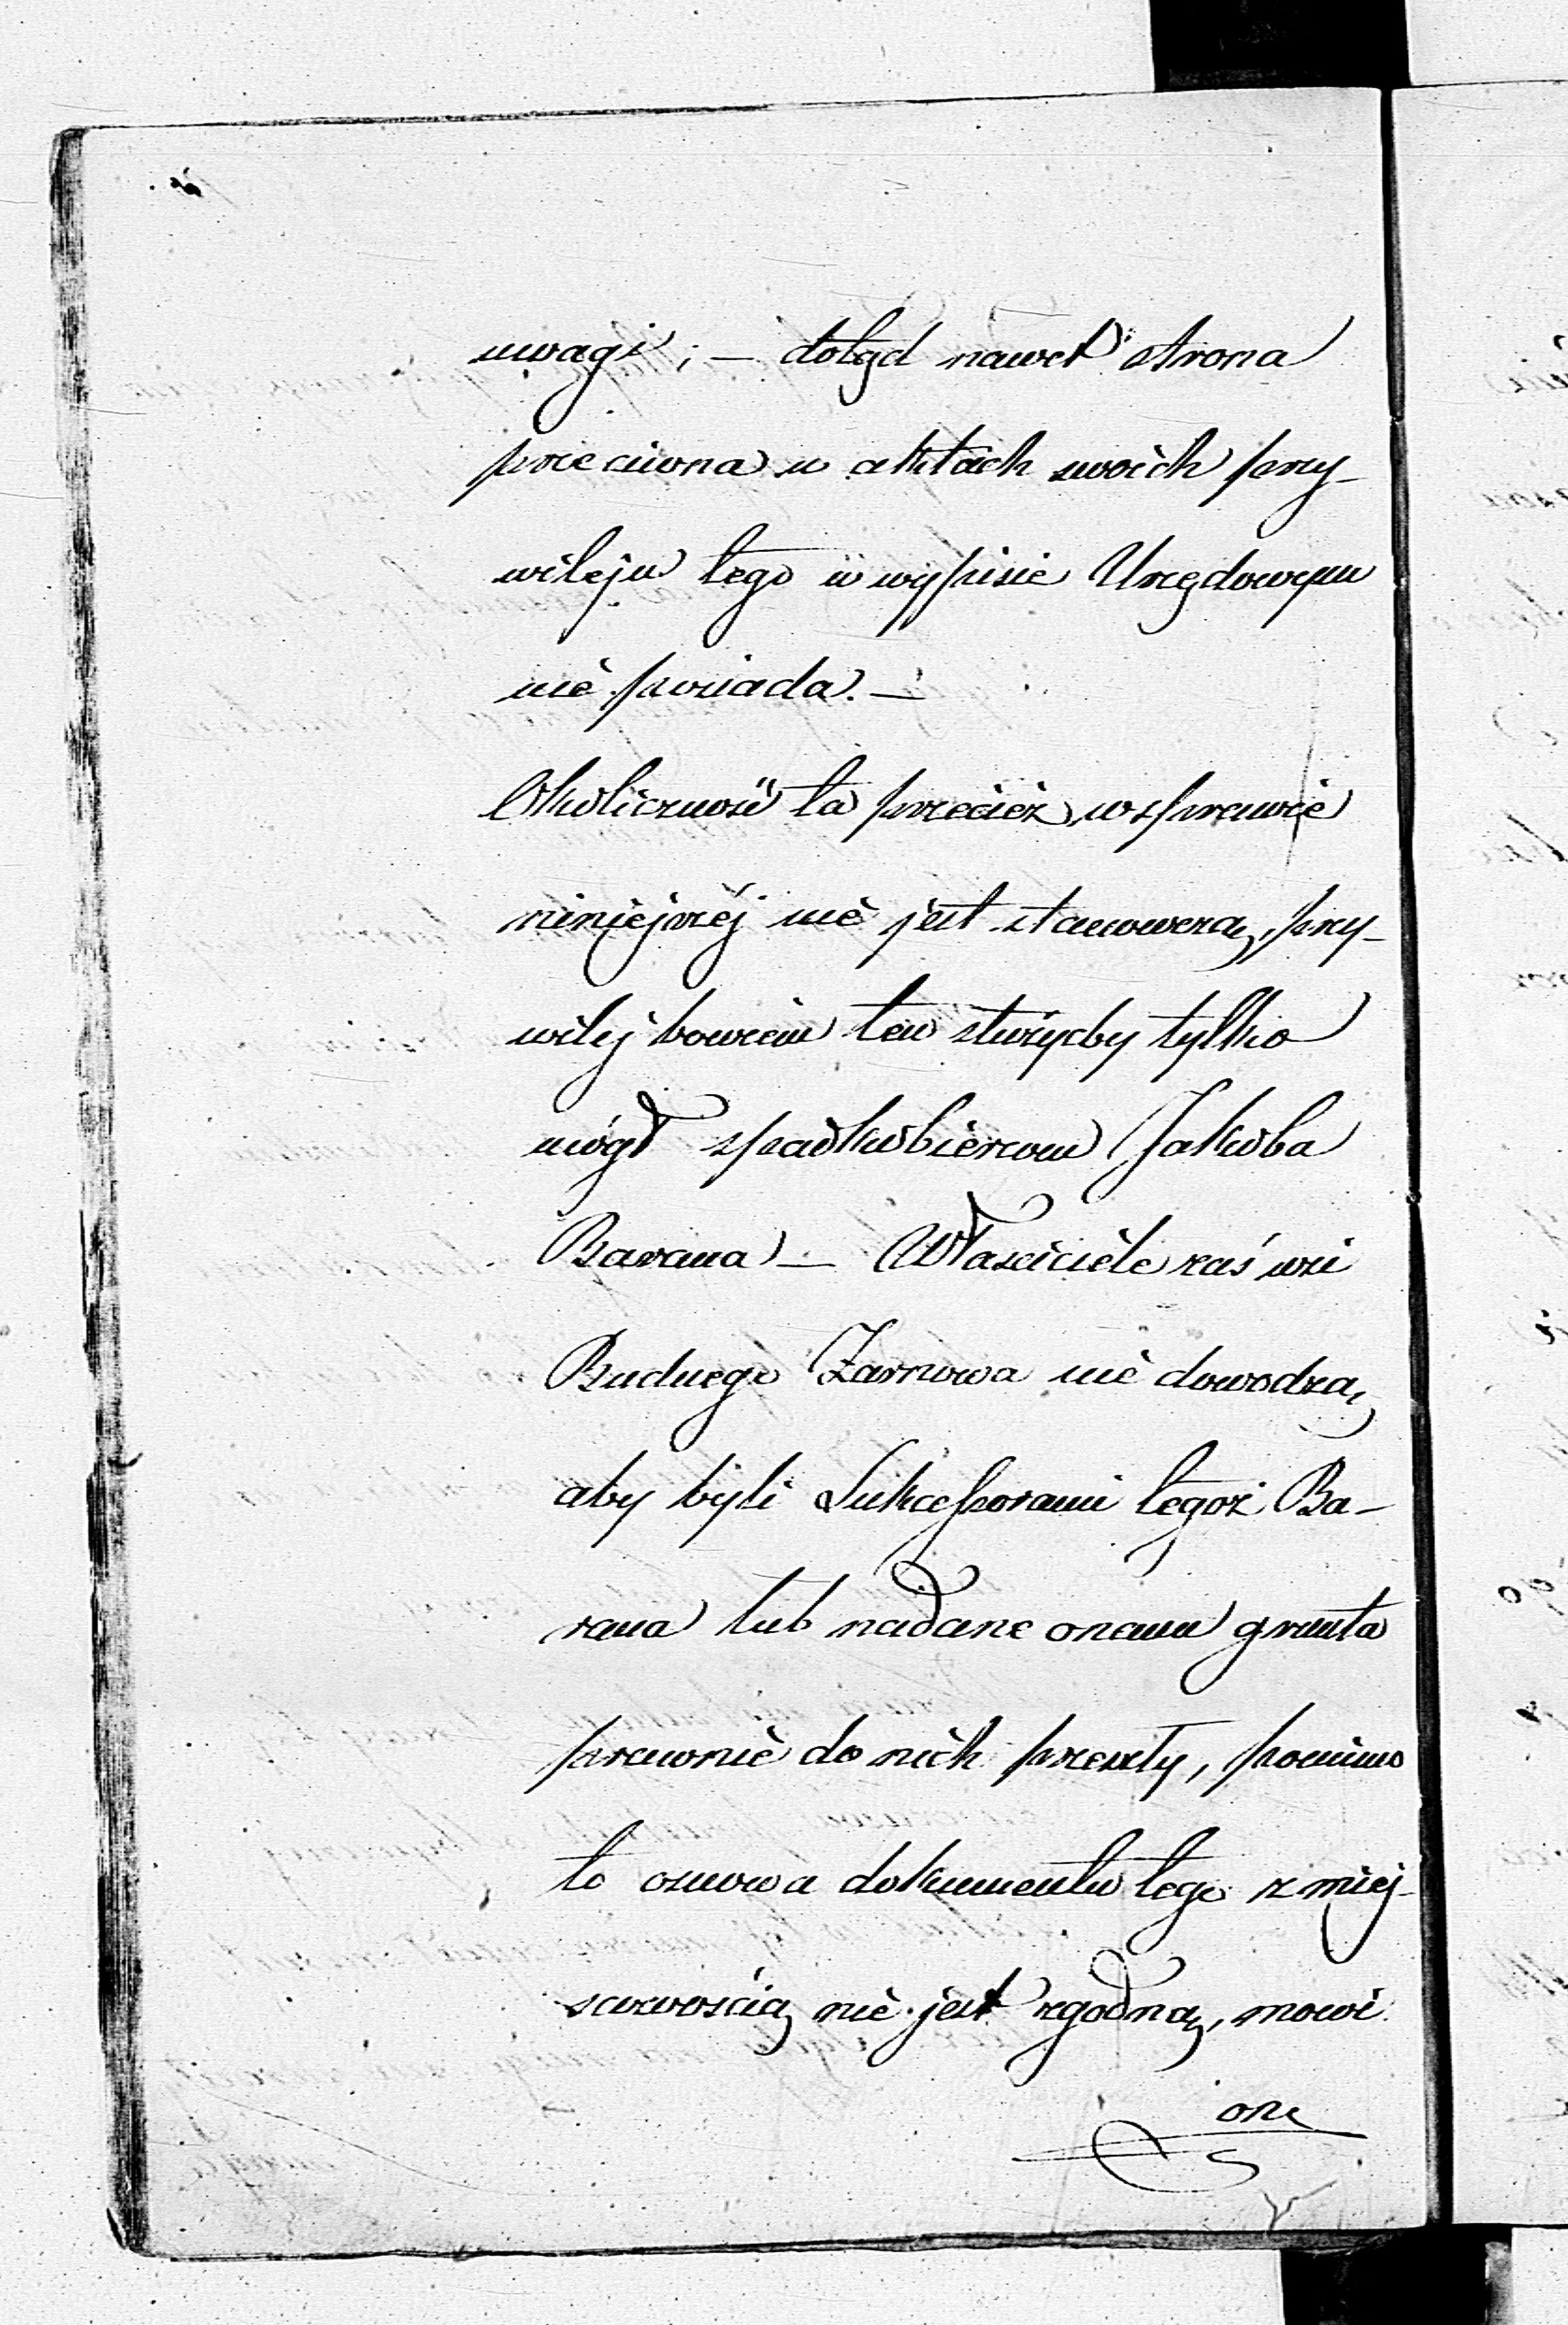 uwagi; — dotąd nawet strona
przeciwna w aktach swoich przy-
wileju tego w wypisie Urzędowym
nie posiada. —
Okoliczność ta przecież w sprawie
niniejszéj nie jest stanowczą, przy-
wilej bowiem ten służyćby tylko
mógł spadkobiercom Jakóba
Barana — Właściciele zaś wsi
Rudnego Żarnowa nie dowodzą,
aby byli Sukcessorami tegoż Ba-
rana lub nadane onemu grunta
prawnie do nich przeszły, pomimo
to osnowa dokumentu tego z miej-
scowością nie jest zgodną, mowi
on